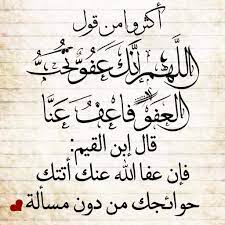 أكثروا من قول
اللَّهُمَّ إِنَّكَ عَفُوٌّ تُحِبُّ
العَفْوَ فَاعْفُ عَنَّا
قال إبن القيم:
فإن عفا الله عنك أتتك
حوائجك من دون مسألة